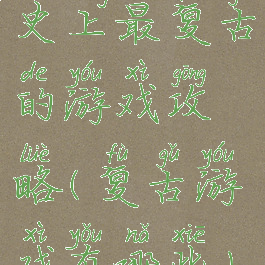 史上最复古
de yóu xì gōng
的游戏攻
lüè fù gǔ yóu
略(复古游
xì yǒu nǎ xiē
戏有哪些)